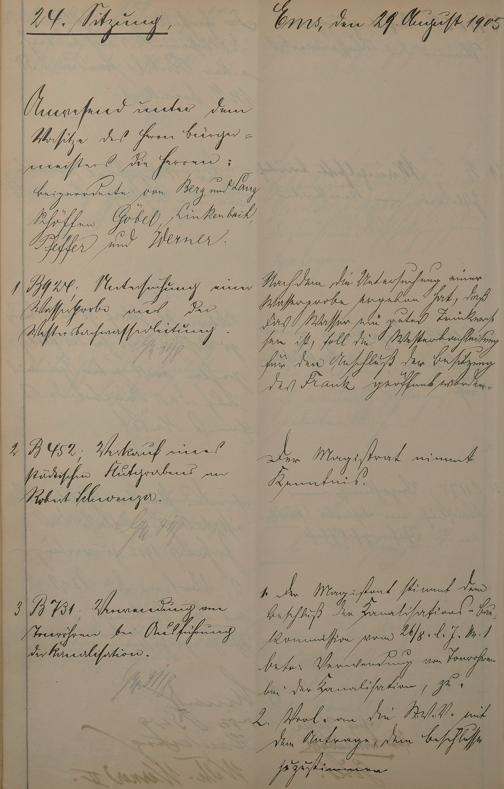 24. Sitzung.
Ems, den 29 August 1905
Anwesend unter dem
Vorsitze des Herrn Bürger-
meisters die Herren:
Beigeordnete von Berg und Lang
Schöffen Göbel, Linkenbach,
Pfeffer und Werner.
1 B 924. Untersuchung einer
Wasserprobe aus der
Westerbachwasserleitung.
Nachdem die Untersuchung einer
Wasserprobe ergeben hat, daß
das Wasser ein gutes
ist, soll die Westerbachleitung
für den Anschluß der Besitzung
des Frank geöffnet werden.
2 B 452. Verkauf eines
städtischen an
Robert
Der Magistrat nimmt
Kenntnis.
3 B 731. Verwendung von
Tonröhren bei Ausführung
der Kanalisation.
1. Der Magistrat stimmt dem
Beschluß der Kanalisations-Bau-
Kommission vom 26/8. l. J. N. 1
betr. Verwendung von Tonröhren
bei der Kanalisation, zu.
2. Vorl. an die St.V.V. mit
dem Antrage, dem Beschlusse
zuzustimmen